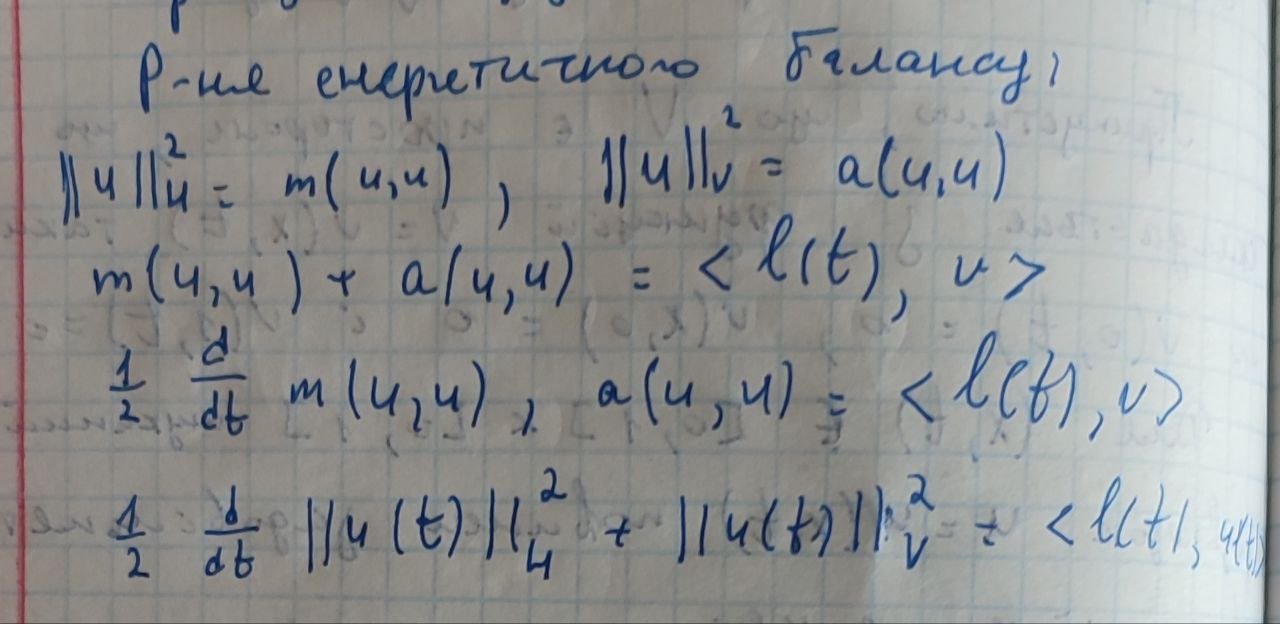 Р-ня енергетичного балансу;
||u||²_H = m(u,u), ||u||²_V = a(u,u)
m(u,u) + a(u,u) = <l(t), v>
1/2 d/dt m(u,u), a(u,u) = <l(t), v>
1/2 d/dt ||u(t)||²_H + ||u(t)||²_V = <l(t), u(t)>